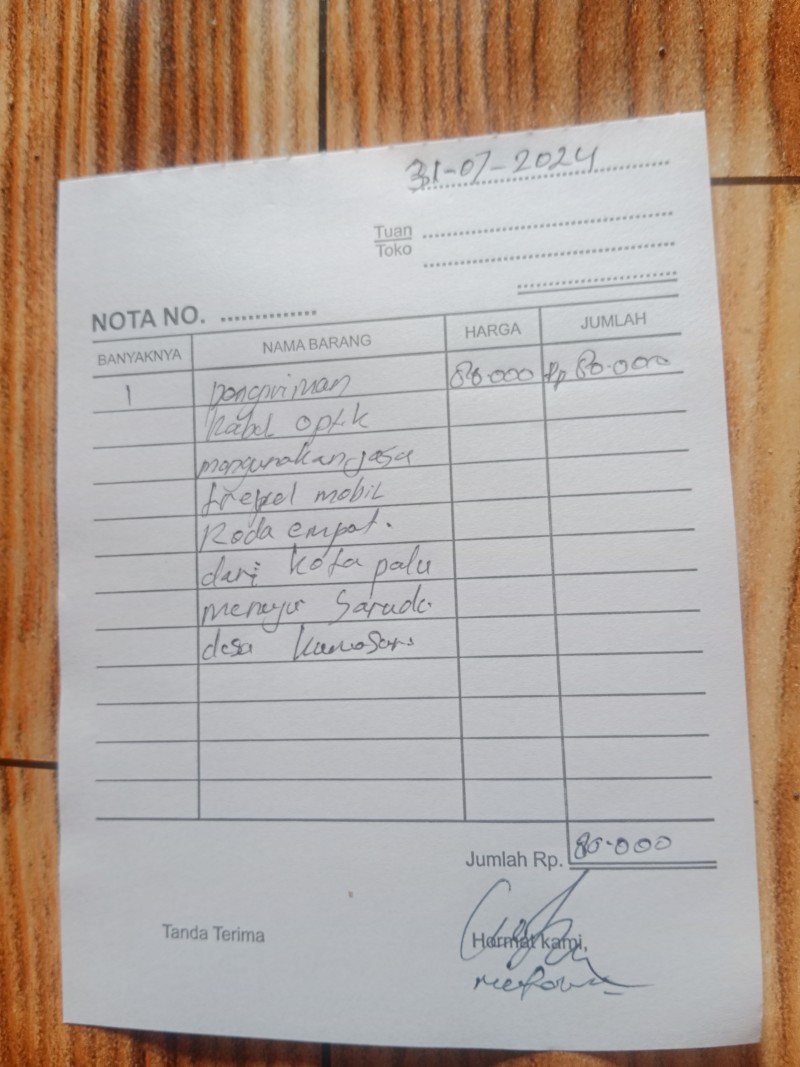 31-07-2024
Tuan
Toko
NOTA NO. ..............
BANYAKNYA NAMA BARANG HARGA JUMLAH
1 pengiriman 80.000 Rp 80.000
Kabel optik
mengunakan jasa
trepel mobil
Roda empat.
dari kota palu
menuju
desa
Jumlah Rp. 80.000
Tanda Terima
Hormat kami,